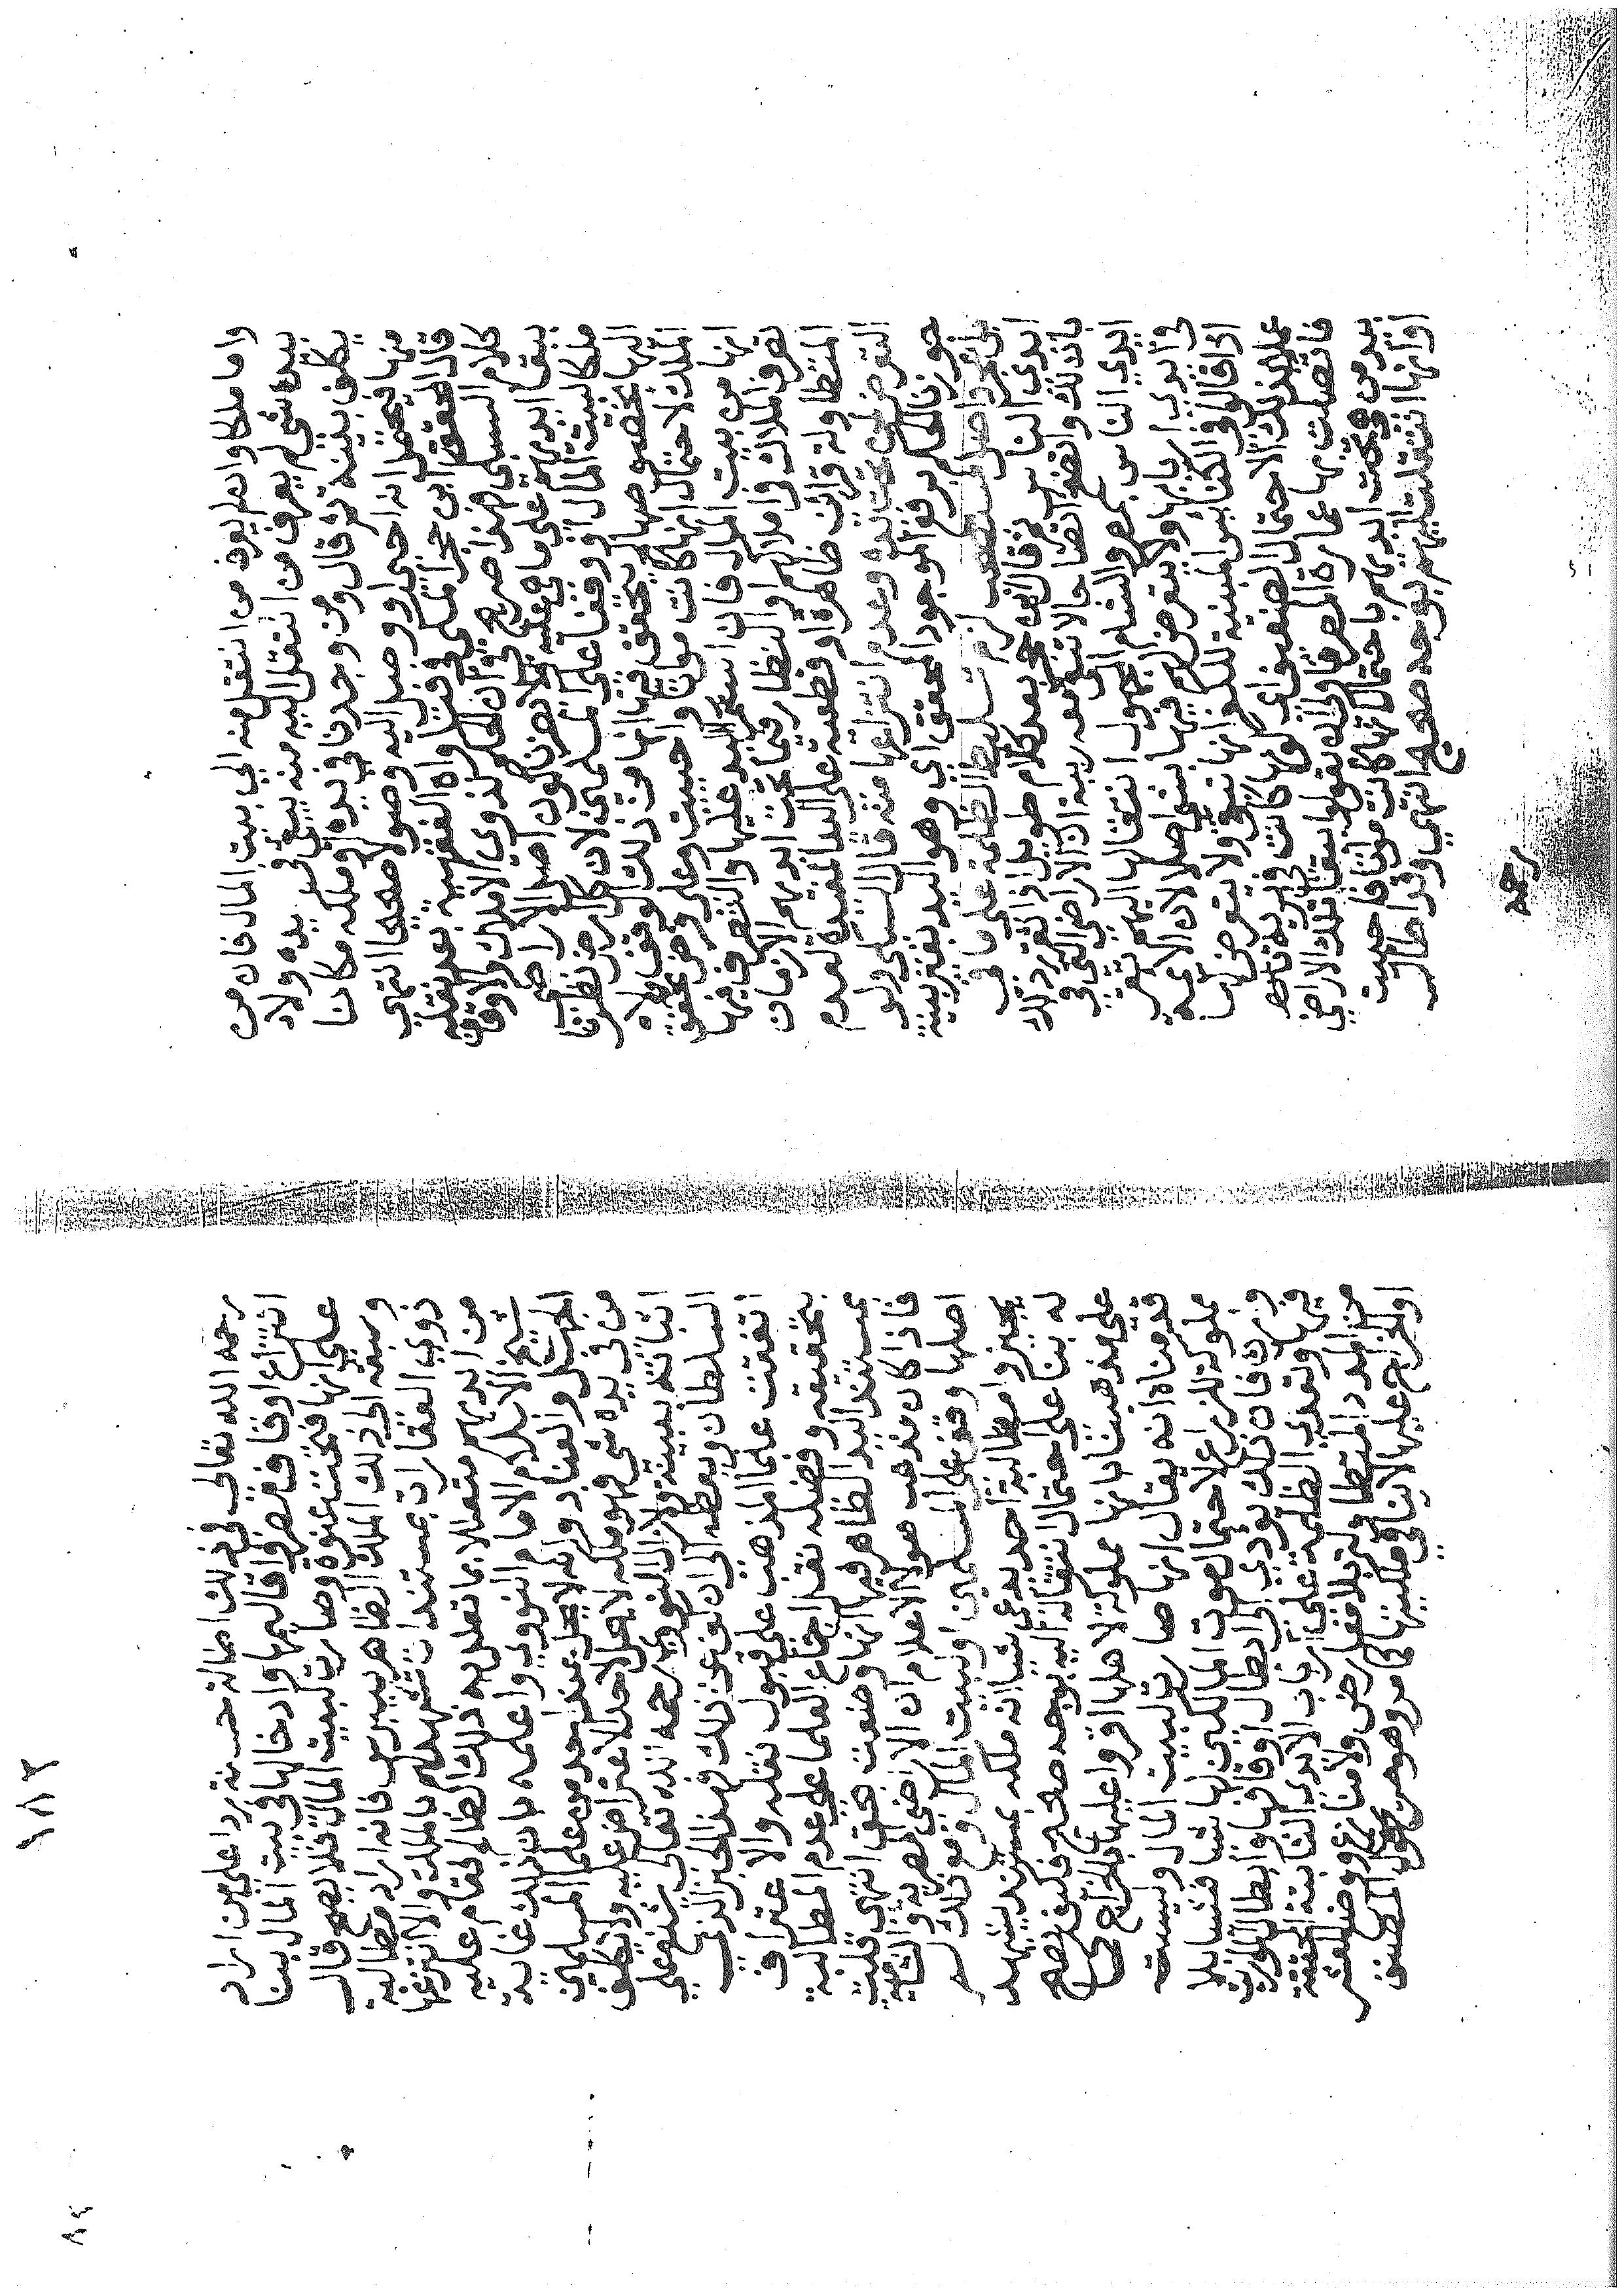 واما ملكا وان لم يعرف من انتقل منه الى بيت المال فان من
بيده شي لم يعرف من انتقل اليه منه يبقى في يده ولا
يكلف بينة ثم قال ومن وجدنا في يده او ملكه مكانا
منها فيحتمل انه احيى او وصل اليه وصولا صحيحا انتهى
قال المحقق ابن حجر المكي في فتاواه الفقهية بعد نقله
كلام السبكي هذا صريح في ان نحكم لذوي الاملاك والاوقاف
ببقا ايديهم على ما هي عليه ولا يضرنا كون اصل الاراضي
ملكا لبيت المال او وقفا على المسلمين لان كل ارض نظرنا
اليها بخصوصها لم يتحقق فيها انها من ذلك الوقف ولا
الملك لاحتمال انها كانت مواتا واحييت وعلى فرض تحقق
انها من بيت المال فان استمرار اليد عليها والتصرف فيها
تصرف الملاك في املاكهم او النظار فيما تحت ايديهم الازمان
المتطاولة قرائن ظاهرة او قطعية على اليد المفيدة لعدم
التعرض لمن هي تحت يده وعدم انتزاعها منه قال السبكي ولو
جوزنا الحكم برفع الموجود المحقق اي وهو اليد بغير بينة
بل بمجرد اصل مستصحب لزم تسليط الظلمة على ما في
ايدي الناس ثم قال ابن حجر بعد كلام طويل اذا تقرر ذلك
بان لك واتضح اتضاحا لا تبقى معه ريبة ان الاراضي التي في
ايدي الناس بمصر والشام المجهول انتقالها اليهم تقر
في ايدي اربابها ولا يتعرض لهم فيها بشي اصلا لان الايمة
اذا قالوا في الكنائس المبنية للكفر انها تبقى ولا يتعرض لها
عملا بذلك الاحتمال الضعيف اي كونها كانت في برية
فاتصلت بها عمارة المصر فاولى ان يقولوا ببقا تلك الاراضي
بيد من هي تحت ايديهم باحتمال انها كانت مواتا فاحييت
او انها انتقلت اليهم بوجه صحيح انتهى وقد اطال
رحمه
١٨٢
رحمه الله تعالى في ذلك اطالة حسنة ردا على من اراد
انتزاع اوقاف مصر واقاليمها وادخالها في بيت المال بنا
على انها فتحت عنوة وصارت لبيت المال فلا يصح قال
وسبقه الى ذلك الملك الظاهر بيبرس فانه اراد مطالبة
ذوي العقارات بمستندات تشهد لهم بالملك والا انتزعها
من ايديهم متعللا بما تعلل به ذلك الظالم فقام عليه
شيخ الاسلام الامام النووي واعلمه بان ذلك غاية
الجهل والعناد وانه لا يحل عند احد من علما المسلمين
من في يده شي فهو ملكه لا يحل لاحد الاعتراض عليه ولا يكلف
اثباته ببينة ولا زال النووي رحمه الله تعالى يشنع على
السلطان ويعظه الى ان كف عن ذلك فهذا الحبر الذي
اتفقت علما المذهب على قبول نقله والاعتراف
بتحقيقه وفضله نقل اجماع العلما على عدم المطالبة
بمستند اليد الظاهر فيها انها وضعت بحق انتهى قلت
فاذا كان مذهب هولا الاعلام ان الاراضي المصرية والشامية
اصلها وقف على المسلمين او لبيت المال ومع ذلك لم
يجيزوا مطالبة احد يدعي شيا انه ملكه بمستند يشهد
له بنا على احتمال انتقاله اليه بوجه صحيح فكيف يصح
على مذهبنا بانها مملوكة لاهلها اقروا عليها بالخراج كما
قدمناه انه يقال انها صارت لبيت المال وليست
مملوكة للزراع لاحتمال موت المالكين لها شيا فشيا بلا
وارث فان ذلك يودي الى ابطال اوقافها وابطال المواريث
فيها وتعدي الظلمة على ارباب الايدي الثابتة المحققة
في المدد المتطاولة بلا معارض ولا منازع ووضع العشر
او الخراج عليها لا ينافي ملكيتها كما مر وهو صريح قول المصنف